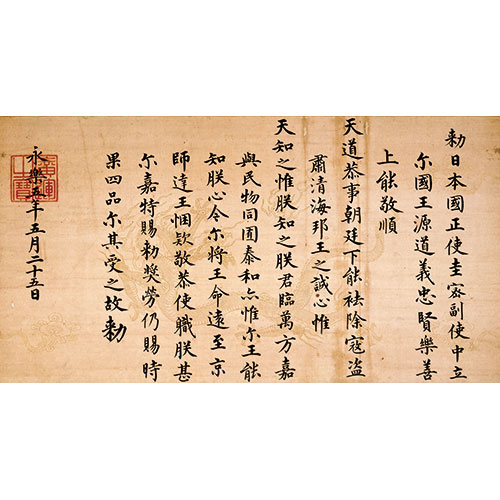 勑日本國正使圭密副使中立
尓國王源道義忠賢樂善
上能敬順
天道恭事朝廷下能祛除寇盗
肅清海邦王之誠心惟
天知之惟朕知之朕君臨萬方嘉
與民物同囿泰和亦惟尓王能
知朕心令尓将王命遠至京
師達王悃欵敬恭使職朕甚
尓嘉特賜勑奬勞仍賜時
果四品尓其受之故勑
永樂五年五月二十五日